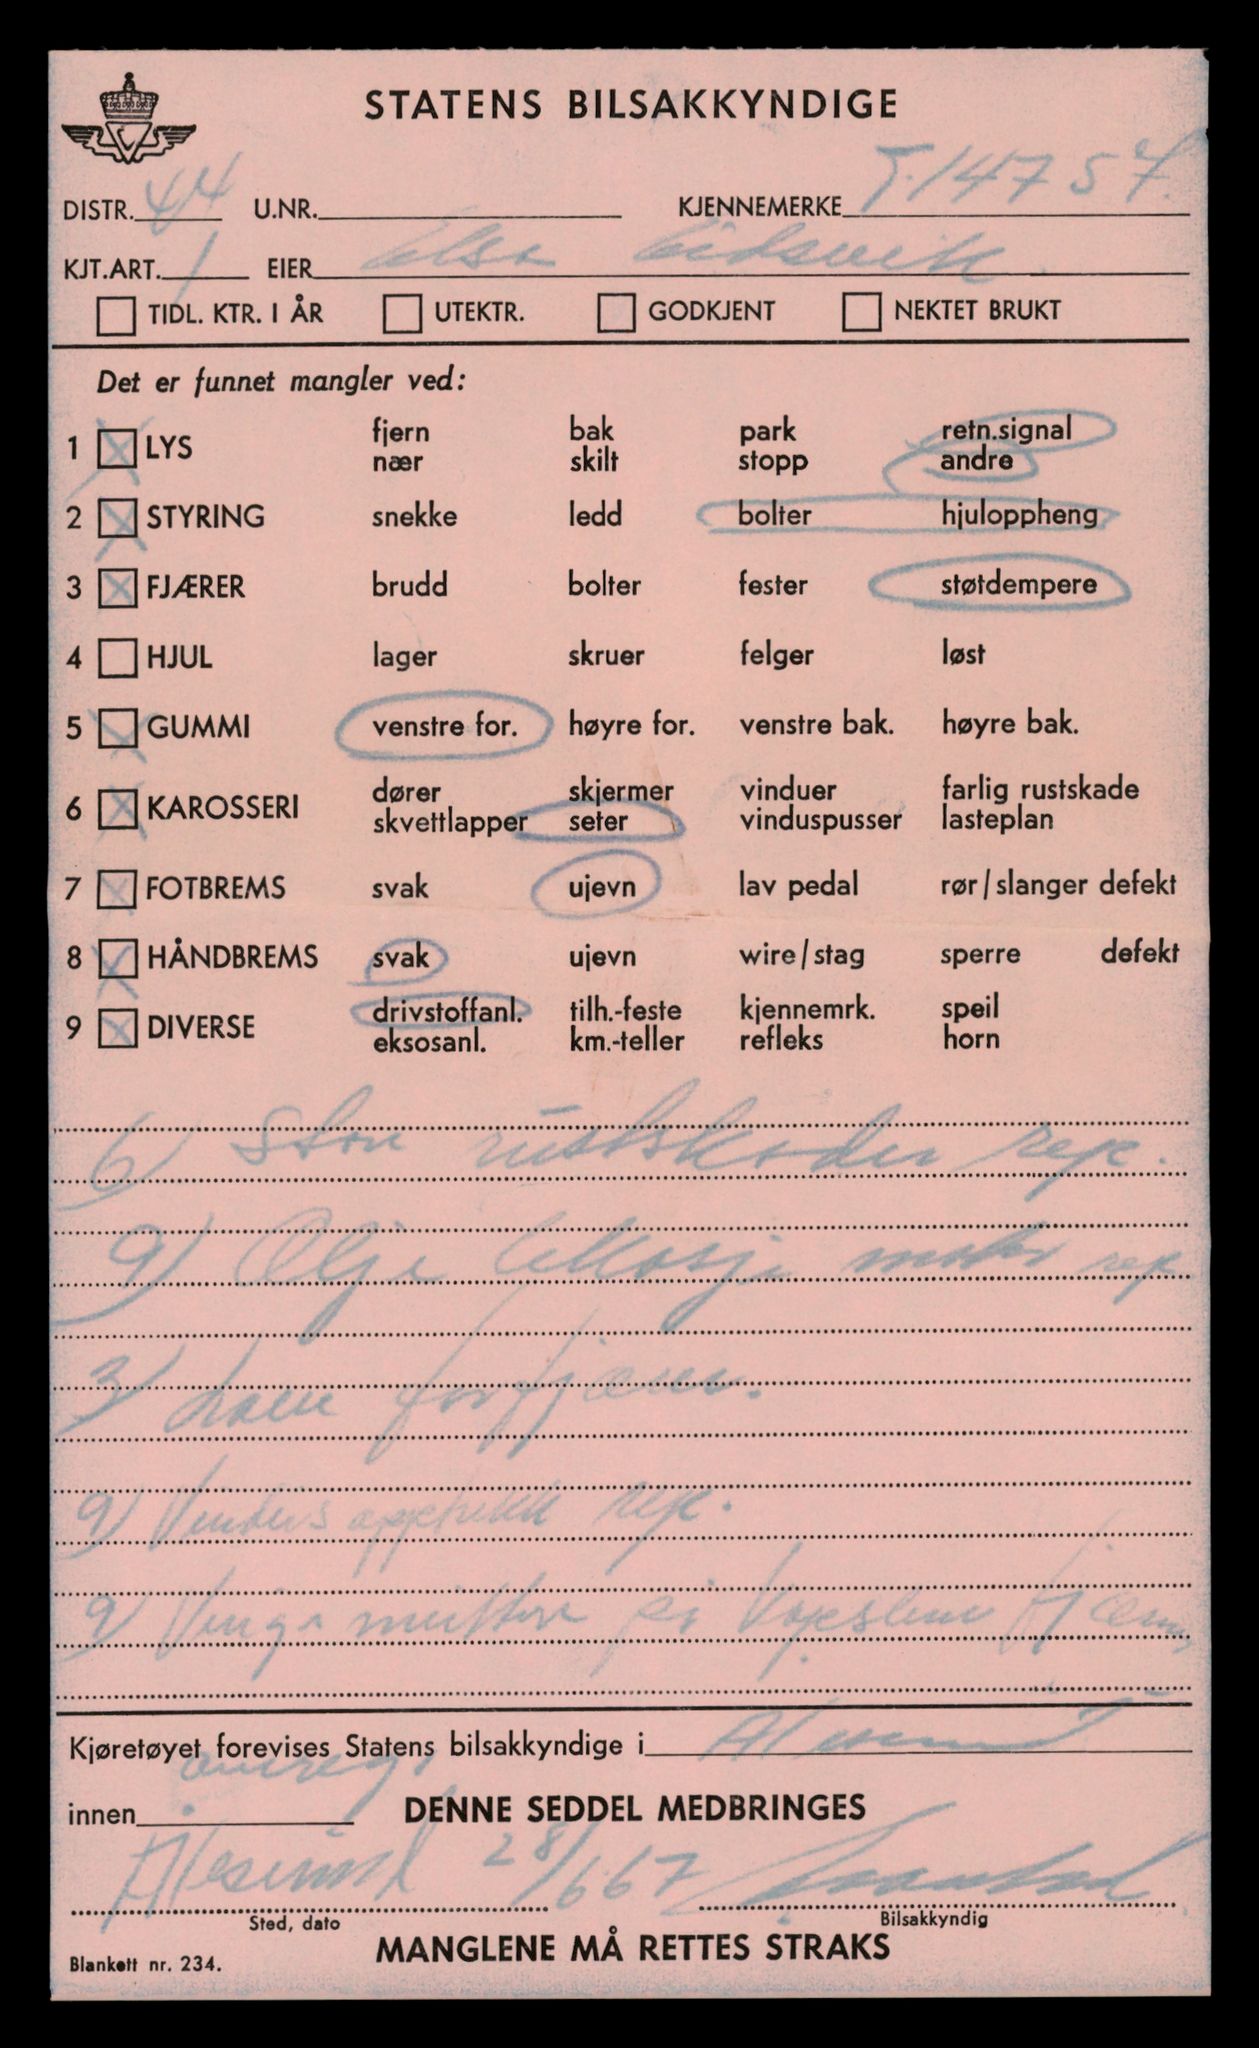 STATENS BILSAKKYNDIGE
DISTR. 44 U.NR. KJENNEMERKE T.14757.
KJT.ART. 1 EIER Else Eidsvik.
TIDL. KTR. I ÅR UTEKTR. GODKJENT NEKTET BRUKT
Det er funnet mangler ved:
1 LYS fjern bak park retn.signal
nær skilt stopp andre
2 STYRING snekke ledd bolter hjuloppheng
3 FJÆRER brudd bolter fester støtdempere
4 HJUL lager skruer felger løst
5 GUMMI venstre for. høyre for. venstre bak. høyre bak.
6 KAROSSERI dører skjermer vinduer farlig rustskade
skvettlapper seter vinduspusser lasteplan
7 FOTBREMS svak ujevn lav pedal rør/slanger defekt
8 HÅNDBREMS svak ujevn wire/stag sperre defekt
9 DIVERSE drivstoffanl. tilh.-feste kjennemrk. speil
eksosanl. km.-teller refleks horn
6) Store rustskader rep.
9) Olje motor rep
3) forfjærer.
9) rep.
9) på
Kjøretøyet forevises Statens bilsakkyndige i Ålesund
innen omreg. DENNE SEDDEL MEDBRINGES
Ålesund 28/6 67
Sted, dato Bilsakkyndig
MANGLENE MÅ RETTES STRAKS
Blankett nr. 234.